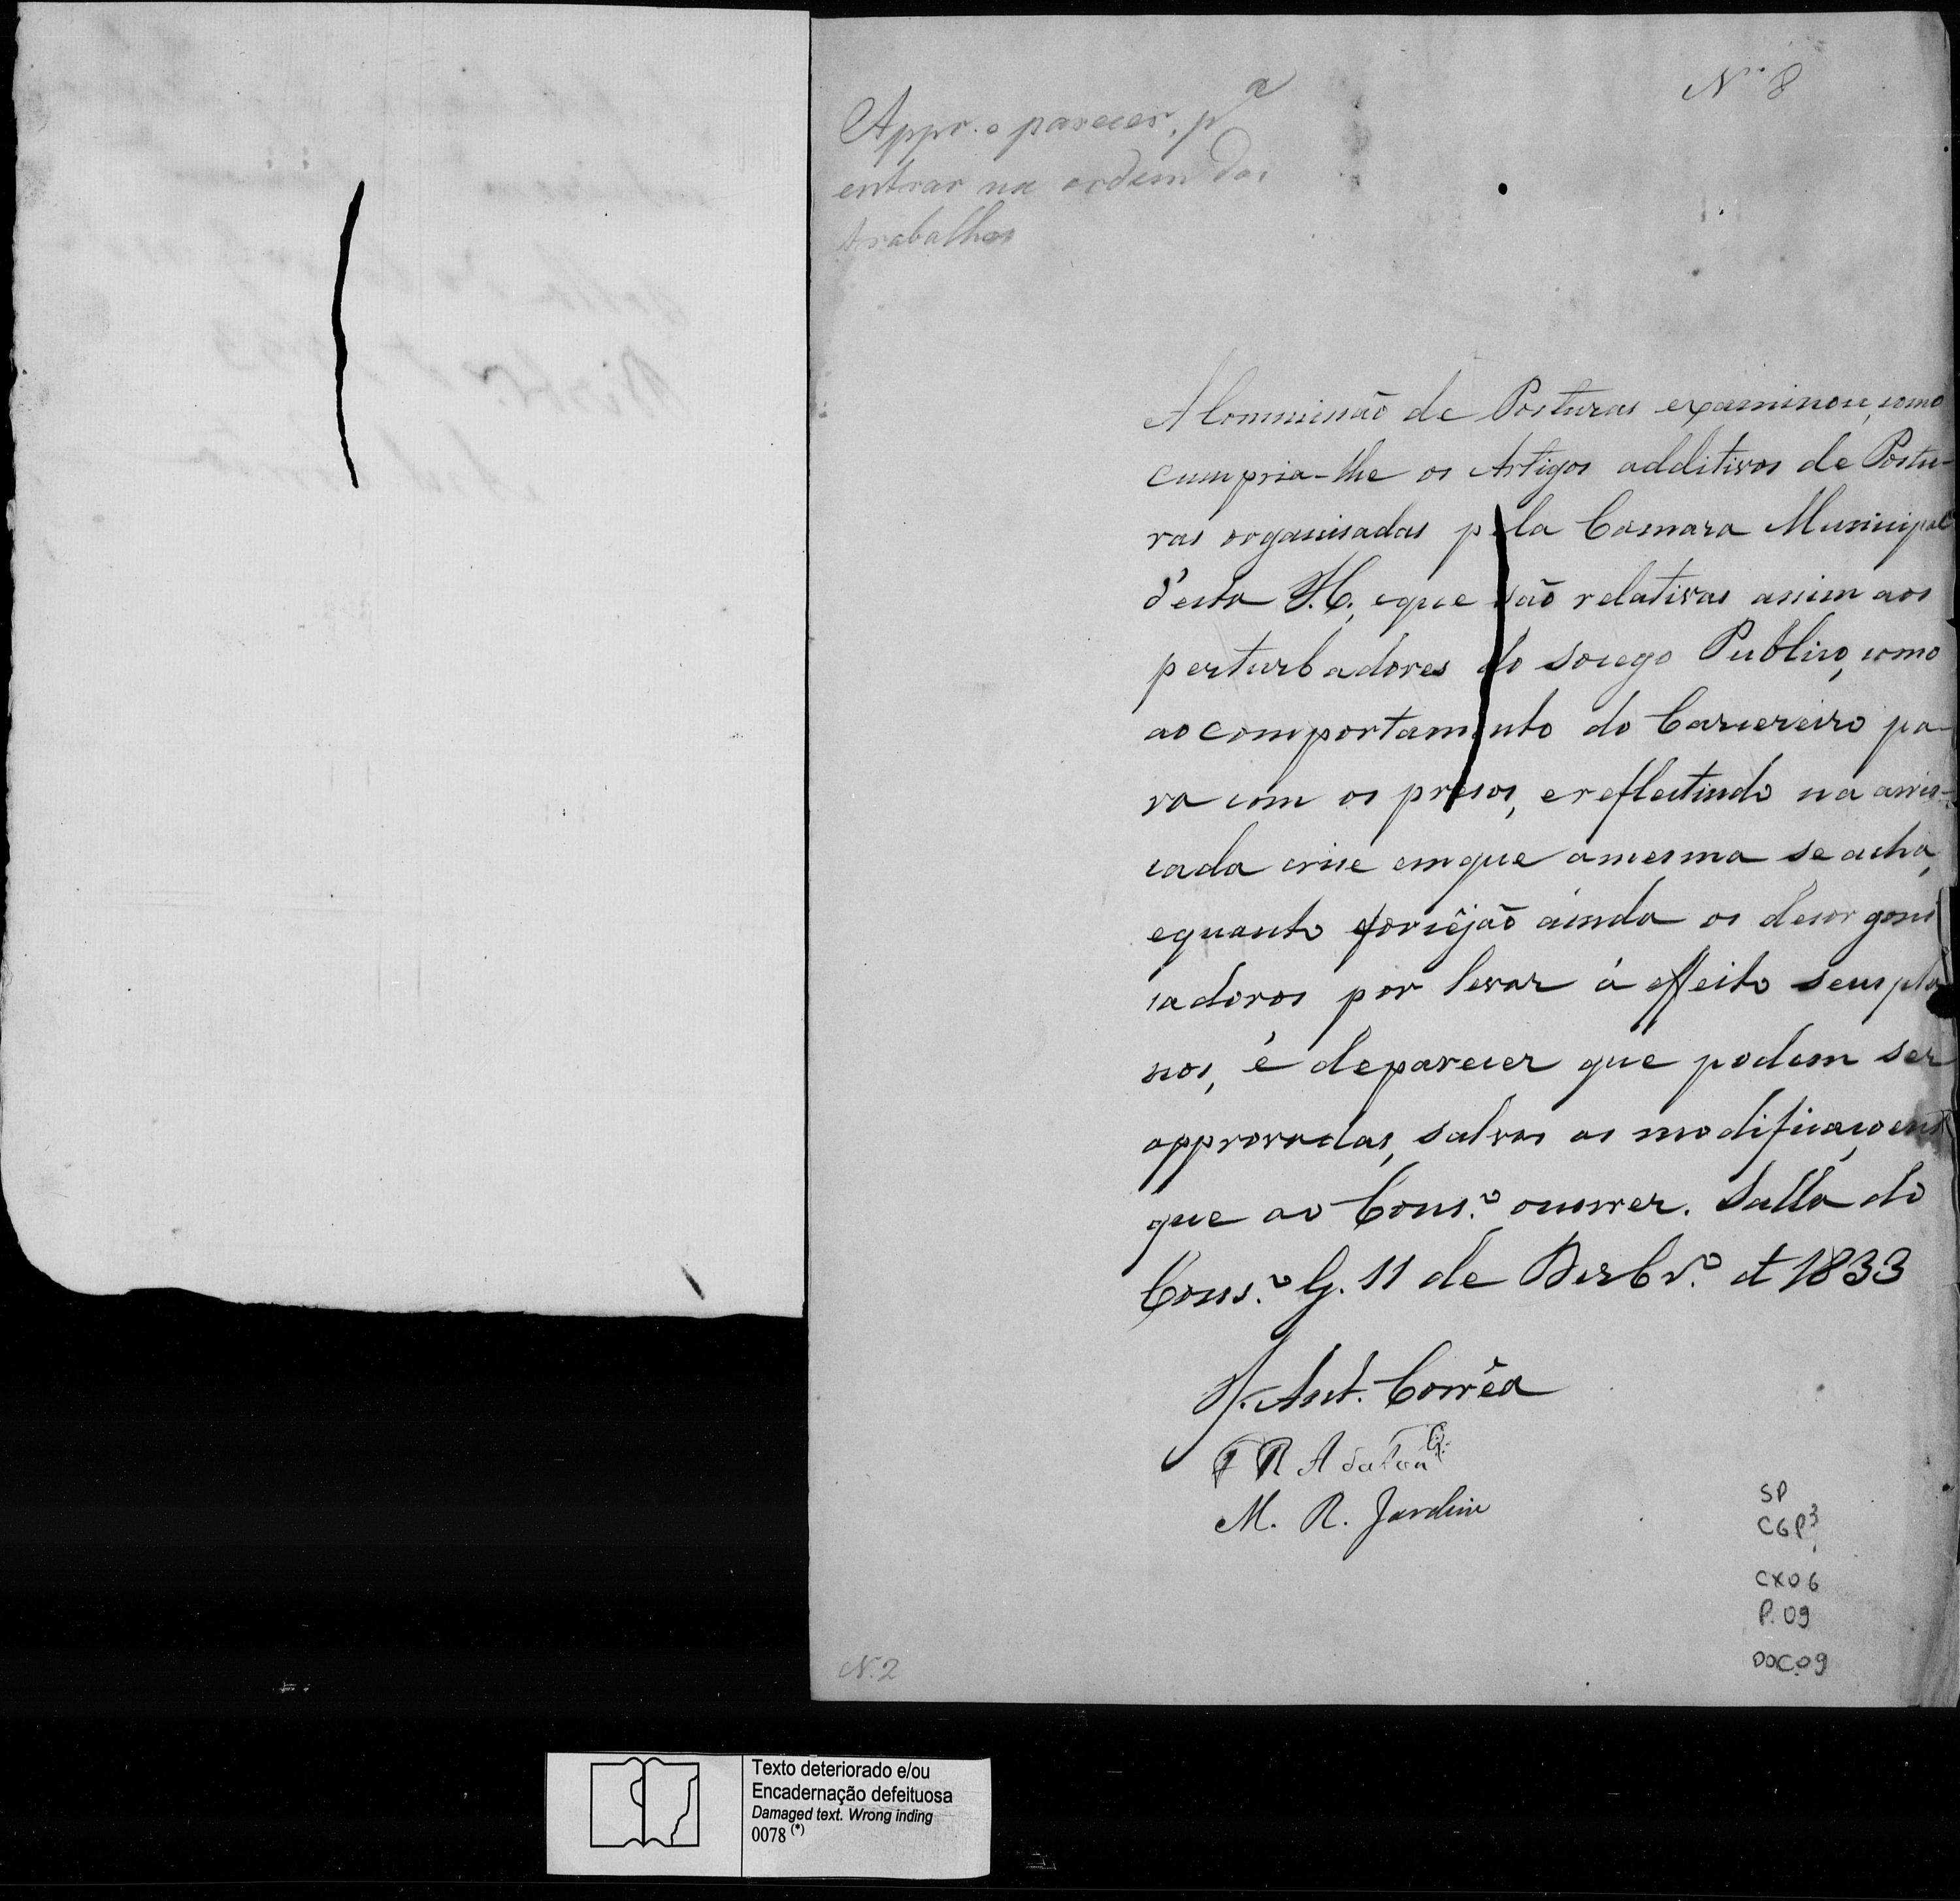 Nº 8
Appr. o parecer, pª
entrar na ordem dos
trabalhos
A Commissão de Posturas examinou, como
cumpria-lhe os Artigos additivos de Postu-
ras organisadas pela Camara Municipal
d'esta V.C. e que são relativas assim aos
perturbadores do socego Publico, como
ao comportamento do Carcereiro pa-
ra com os presos, e reflectindo na arris-
cada crise em que a mesma se acha,
e quanto forcêjão ainda os desorgani
sadores por levar á effeito seus pla
nos, é de parecer que podem ser
approvadas, salvas as modificaçoens
que ao Cons.º occorrer. Salla do
Cons.º G. 11 de Dezbr.º d 1833
Ant. Corrêa
M. R. Jardim
SP
CGP3
CX06
P. 09
DOC.09
N. 2
Texto deteriorado e/ou
Encadernação defeituosa
Damaged text. Wrong inding
0078 (*)